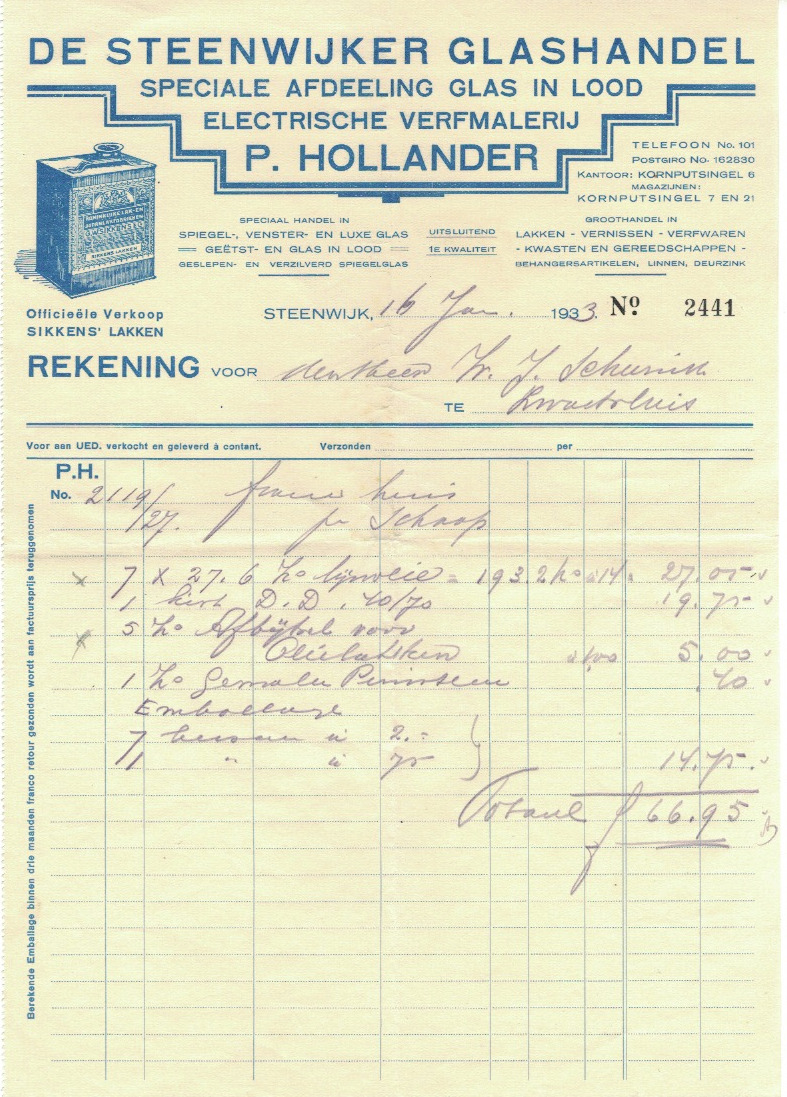 DE STEENWIJKER GLASHANDEL
SPECIALE AFDEELING GLAS IN LOOD
ELECTRISCHE VERFMALERIJ
P. HOLLANDER
TELEFOON No. 101
POSTGIRO No. 162830
KANTOOR: KORNPUTSINGEL 6
MAGAZIJNEN:
KORNPUTSINGEL 7 EN 21
SIKKENS LAKKEN
Officieële Verkoop
SIKKENS' LAKKEN
SPECIAAL HANDEL IN
SPIEGEL-, VENSTER- EN LUXE GLAS
GEËTST- EN GLAS IN LOOD
GESLEPEN- EN VERZILVERD SPIEGELGLAS
UITSLUITEND
1E KWALITEIT
GROOTHANDEL IN
LAKKEN - VERNISSEN - VERFWAREN
- KWASTEN EN GEREEDSCHAPPEN -
BEHANGERSARTIKELEN, LINNEN, DEURZINK
STEENWIJK, 16 Jan. 1933. No 2441
REKENING VOOR den Heer W. J. Schurink
TE
Voor aan UED. verkocht en geleverd à contant. Verzonden per
P.H.
No. 2119/ franco huis
/27. pr Schoop
7 x 27.6 Ko lijnolie = 193.2 Ko a 14 27.05
1 kist D.D. 40/70 19.75
5 Ko Afbijtel voor
a 1,00 5.00
1 Ko Gemalen Puimsteen .40
Emballage
7 bussen a 2.=
1 " a 75 14.75
Totaal f 66.95
Berekende Emballage binnen drie maanden franco retour gezonden wordt aan factuursprijs teruggenomen